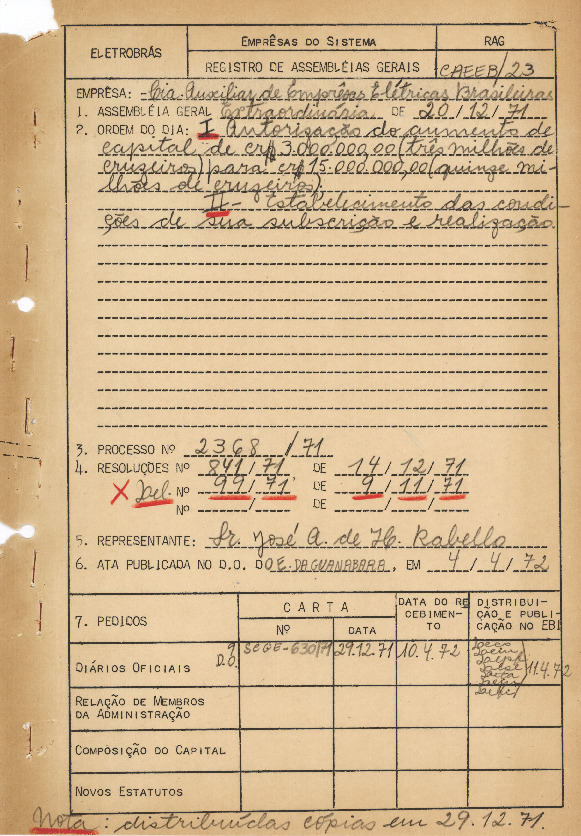 ELETROBRÁS
EMPRÊSAS DO SISTEMA
REGISTRO DE ASSEMBLÉIAS GERAIS
RAG
CAEEB/23
EMPRÊSA: - Cia Auxiliar de Emprêsas Elétricas Brasileiras
1. ASSEMBLÉIA GERAL Extraordinária DE 20/12/71
2. ORDEM DO DIA: I Autorização do aumento de
capital de cr$ 3.000.000,00 (três milhões de
cruzeiros) para cr$ 15.000.000,00 (quinze mi-
lhões de cruzeiros).
II - Estabelecimento das condi-
ções de sua subscrição e realização
3. PROCESSO Nº 2368/71
4. RESOLUÇÕES Nº 841/71 DE 14/12/71
X Del. Nº 99/71 DE 9/11/71
Nº / DE / /
5. REPRESENTANTE: Sr. José A. de H. Rabello
6. ATA PUBLICADA NO D.O. DO E. DA GUANABARA, EM 4/4/72
7. PEDIDOS
CARTA
Nº
DATA
DATA DO RE
CEBIMEN-
TO
DISTRIBUI-
ÇÃO E PUBLI-
CAÇÃO NO EBI
DIÁRIOS OFICIAIS
D.O.
SEGE-630/71
29.12.71
10.4.72
11.4.72
RELAÇÃO DE MEMBROS
DA ADMINISTRAÇÃO
COMPOSIÇÃO DO CAPITAL
NOVOS ESTATUTOS
Nota: distribuídas cópias em 29.12.71.